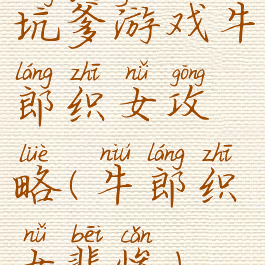 坑爹游戏牛
láng zhī nǚ gōng
郎织女攻
lüè niú láng zhī
略(牛郎织
nǚ bēi cǎn
女悲惨)